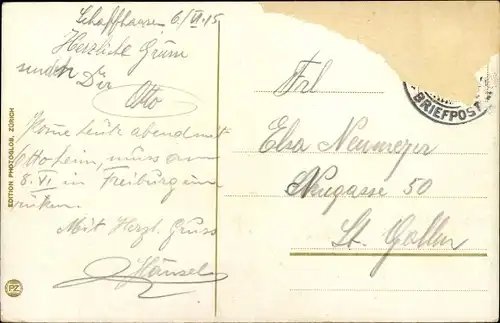 Schaffhausen 6/VI.15
Herzliche Grüsse
senden Dir
Otto
Komme heute abend mit
Otto heim, muss am
8. VI in Freiburg ein-
rücken.
Mit Herzl. Gruss
Hänsel
EDITION PHOTOGLOB, ZÜRICH
PZ
BRIEFPOST
Frl
Elsa Neumeyer
Neugasse 50
St. Gallen